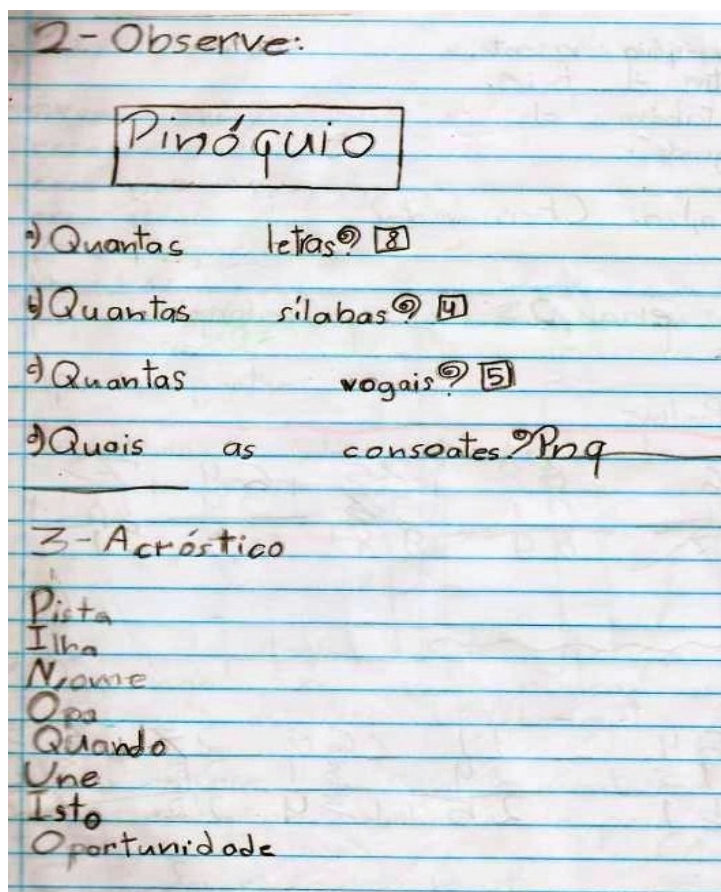 2-Observe:
Pinóquio
a) Quantas letras? 8
b) Quantas sílabas? 4
c) Quantas vogais? 5
d) Quais as consoates? Pnq
3-Acróstico
Pista
Ilha
Nome
Opa
Quando
Une
Isto
Oportunidade